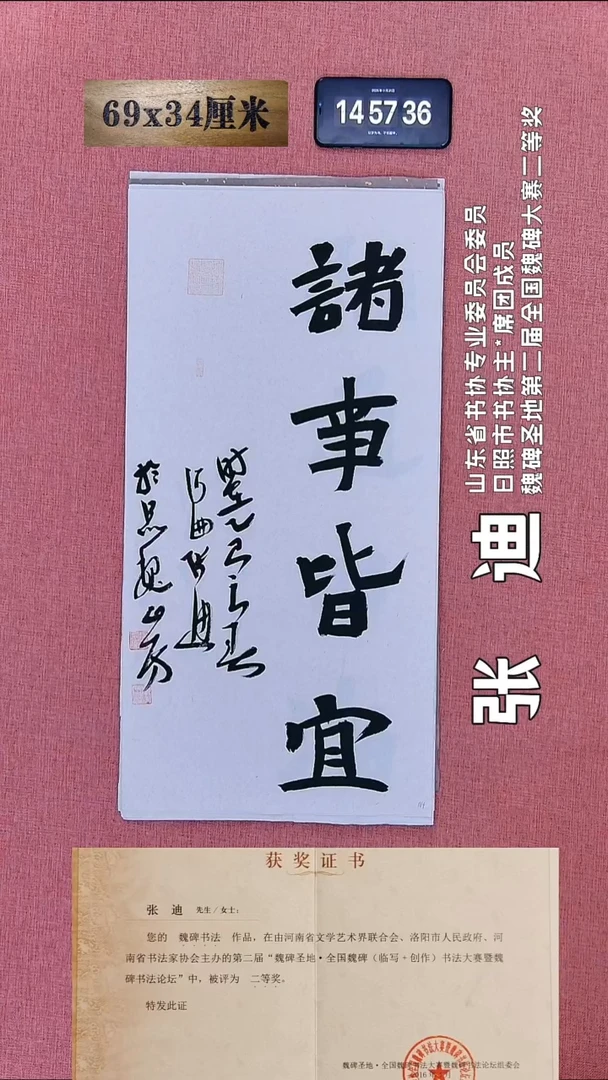 69x34厘米
14 57 36
山东省书协专业委员会委员
日照市书协主*席团成员
魏碑圣地第二届全国魏碑大赛二等奖
张 迪
諸事皆宜
获奖证书
张 迪 先生/女士:
您的 魏碑书法 作品，在由河南省文学艺术界联合会、洛阳市人民政府、河
南省书法家协会主办的第二届“魏碑圣地·全国魏碑（临写+创作）书法大赛暨魏
碑书法论坛”中，被评为 二等奖。
特发此证
魏碑圣地·全国魏碑书法大赛暨魏碑书法论坛组委会